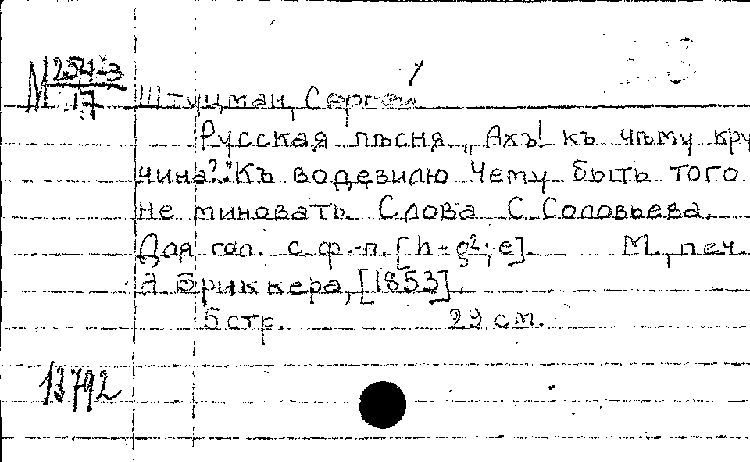 М 254-3
17
Штуцман, Сергей
Русская пѣсня „Ахъ! къ чѣму кру
чина?" Къ водевилю Чему быть того
не миновать Слова С. Соловьева.
Для гол. с ф.-п. [h-g²; e]. М., печ.
Э. Бриккера, [1853].
5 стр. 29 см.
13792